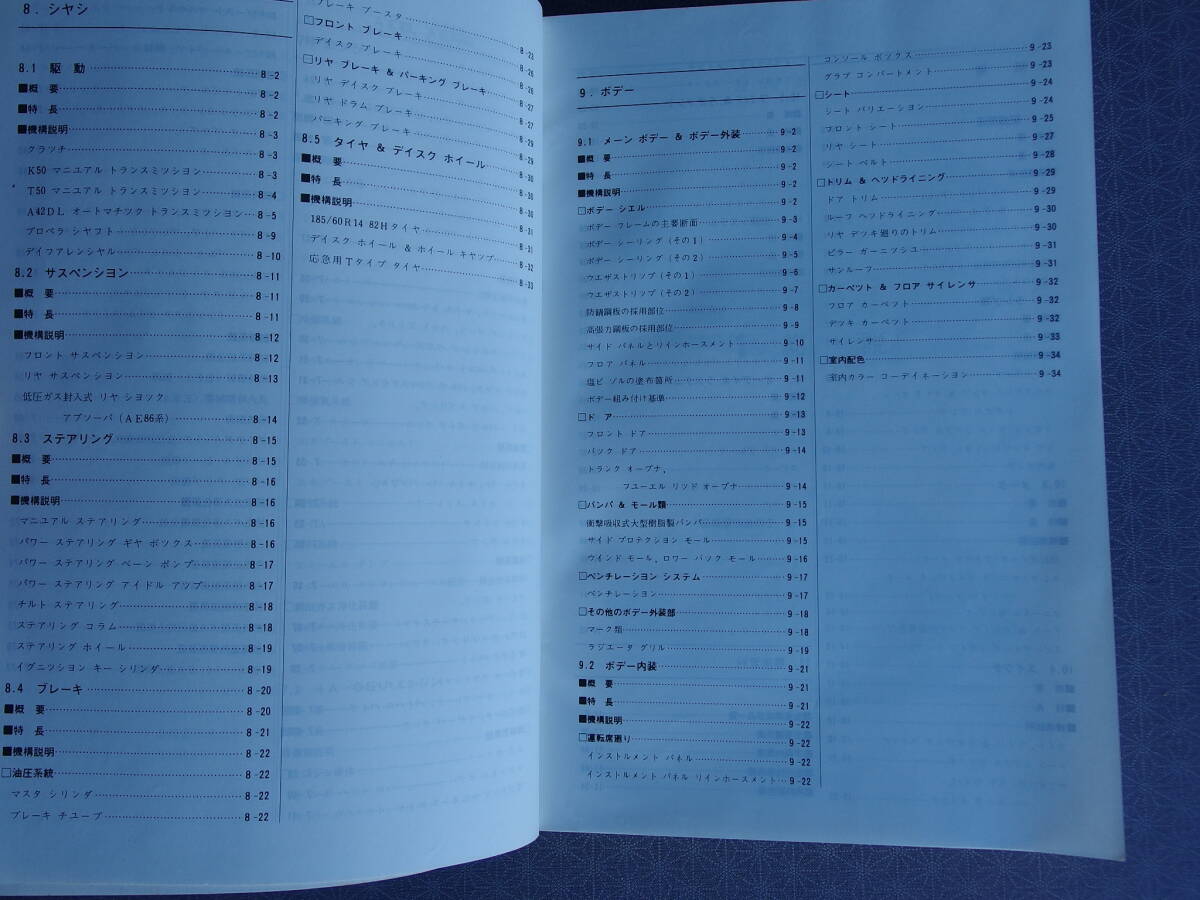 8．シヤシ
8.1 駆 動……8-2
■概 要……8-2
■特 長……8-2
■機構説明……8-3
クラツチ……8-3
K50 マニユアル トランスミツシヨン……8-3
T50 マニユアル トランスミツシヨン……8-4
A42DL オートマチツク トランスミツシヨン……8-5
プロペラ シヤフト……8-9
デイフアレンシヤル……8-10
8.2 サスペンシヨン……8-11
■概 要……8-11
■特 長……8-11
■機構説明……8-12
フロント サスペンシヨン……8-12
リヤ サスペンシヨン……8-13
低圧ガス封入式 リヤ シヨツク
アブソーバ（AE86系）……8-14
8.3 ステアリング……8-15
■概 要……8-15
■特 長……8-16
■機構説明……8-16
マニユアル ステアリング……8-16
パワー ステアリング ギヤ ボツクス……8-16
パワー ステアリング ベーン ポンプ……8-17
パワー ステアリング アイドル アツプ……8-17
チルト ステアリング……8-18
ステアリング コラム……8-18
ステアリング ホイール……8-19
イグニツシヨン キー シリンダ……8-19
8.4 ブレーキ……8-20
■概 要……8-20
■特 長……8-21
■機構説明……8-22
□油圧系統……8-22
マスタ シリンダ……8-22
ブレーキ チユーブ……8-22
ブレーキ ブースタ……8-23
□フロント ブレーキ……8-26
デイスク ブレーキ……8-26
□リヤ ブレーキ & パーキング ブレーキ……8-27
リヤ デイスク ブレーキ……8-27
リヤ ドラム ブレーキ……8-29
パーキング ブレーキ……8-29
8.5 タイヤ & デイスク ホイール……8-30
■概 要……8-30
■特 長……8-30
■機構説明……8-31
185/60R14 82Hタイヤ……8-31
デイスク ホイール & ホイール キヤツプ……8-32
応急用Tタイプ タイヤ……8-33
9．ボデー
9.1 メーン ボデー & ボデー外装……9-2
■概 要……9-2
■特 長……9-2
■機構説明……9-2
□ボデー シエル……9-2
ボデー フレームの主要断面……9-3
ボデー シーリング（その1）……9-4
ボデー シーリング（その2）……9-5
ウエザストリツプ（その1）……9-6
ウエザストリツプ（その2）……9-7
防錆鋼板の採用部位……9-8
高張力鋼板の採用部位……9-9
サイド パネルとリインホースメント……9-10
フロア パネル……9-11
塩ビ ゾルの塗布箇所……9-11
ボデー組み付け基準……9-12
□ド ア……9-13
フロント ドア……9-13
バツク ドア……9-14
トランク オープナ，
フユーエル リツド オープナ……9-14
□バンパ & モール類……9-15
衝撃吸収式大型樹脂製バンパ……9-15
サイド プロテクシヨン モール……9-15
ウインド モール，ロワー バツク モール……9-16
□ベンチレーシヨン システム……9-17
ベンチレーシヨン……9-17
□その他のボデー外装部……9-18
マーク類……9-18
ラジエータ グリル……9-19
9.2 ボデー内装……9-21
■概 要……9-21
■特 長……9-21
■機構説明……9-22
□運転席廻り……9-22
インストルメント パネル……9-22
インストルメント パネル リインホースメント……9-22
コンソール ボツクス……9-23
グラブ コンパートメント……9-23
□シート……9-24
シート バリエーシヨン……9-24
フロント シート……9-25
リヤ シート……9-27
シート ベルト……9-28
□トリム & ヘツドライニング……9-29
ドア トリム……9-29
ルーフ ヘツドライニング……9-30
リヤ デツキ廻りのトリム……9-30
ピラー ガーニツシユ……9-31
サンルーフ……9-31
□カーペツト & フロア サイレンサ……9-32
フロア カーペツト……9-32
デツキ カーペツト……9-32
サイレンサ……9-33
□室内配色……9-34
室内カラー コーデイネーシヨン……9-34